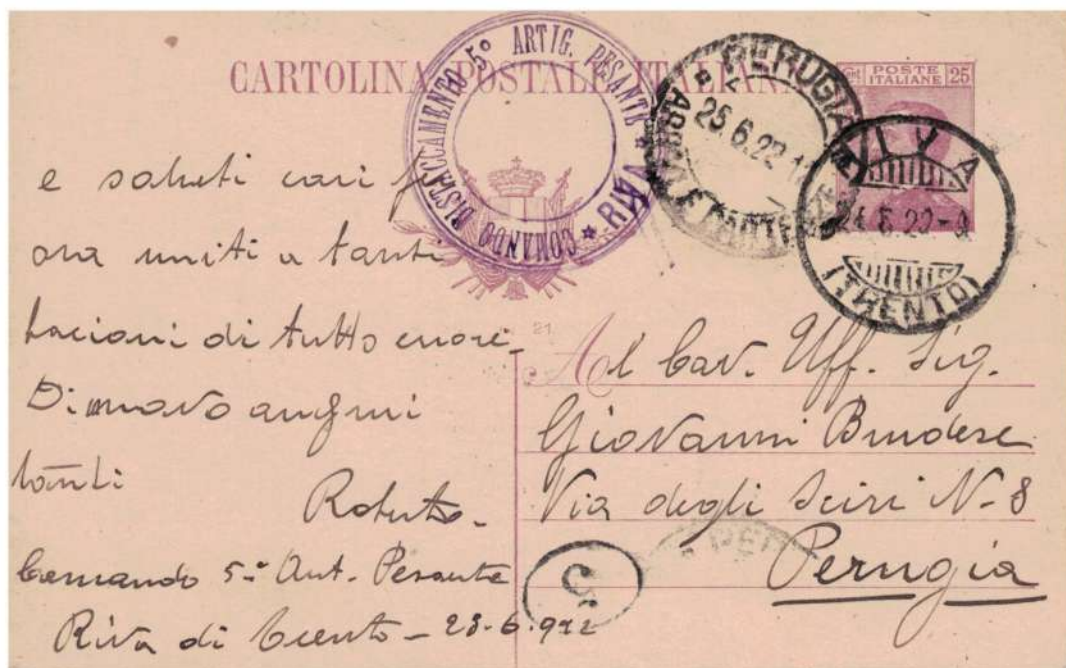 CARTOLINA POSTALE ITALIANA
COMANDO DISTACCAMENTO 5º ARTIG. PESANTE * RIVA *
PERUGIA
25.6.22
POSTE
ITALIANE
25
RIVA
24.6.22-9
(TRENTO)
e saluti cari
ora uniti a tanti
bacioni di tutto cuore
Di nuovo auguri
tanti
Roberto-
Comando 5º Art. Pesante
Riva di Trento - 23-6-922
21
Al Cav. Uff. Sig.
Giovanni
Via degli Sciri N-8
Perugia